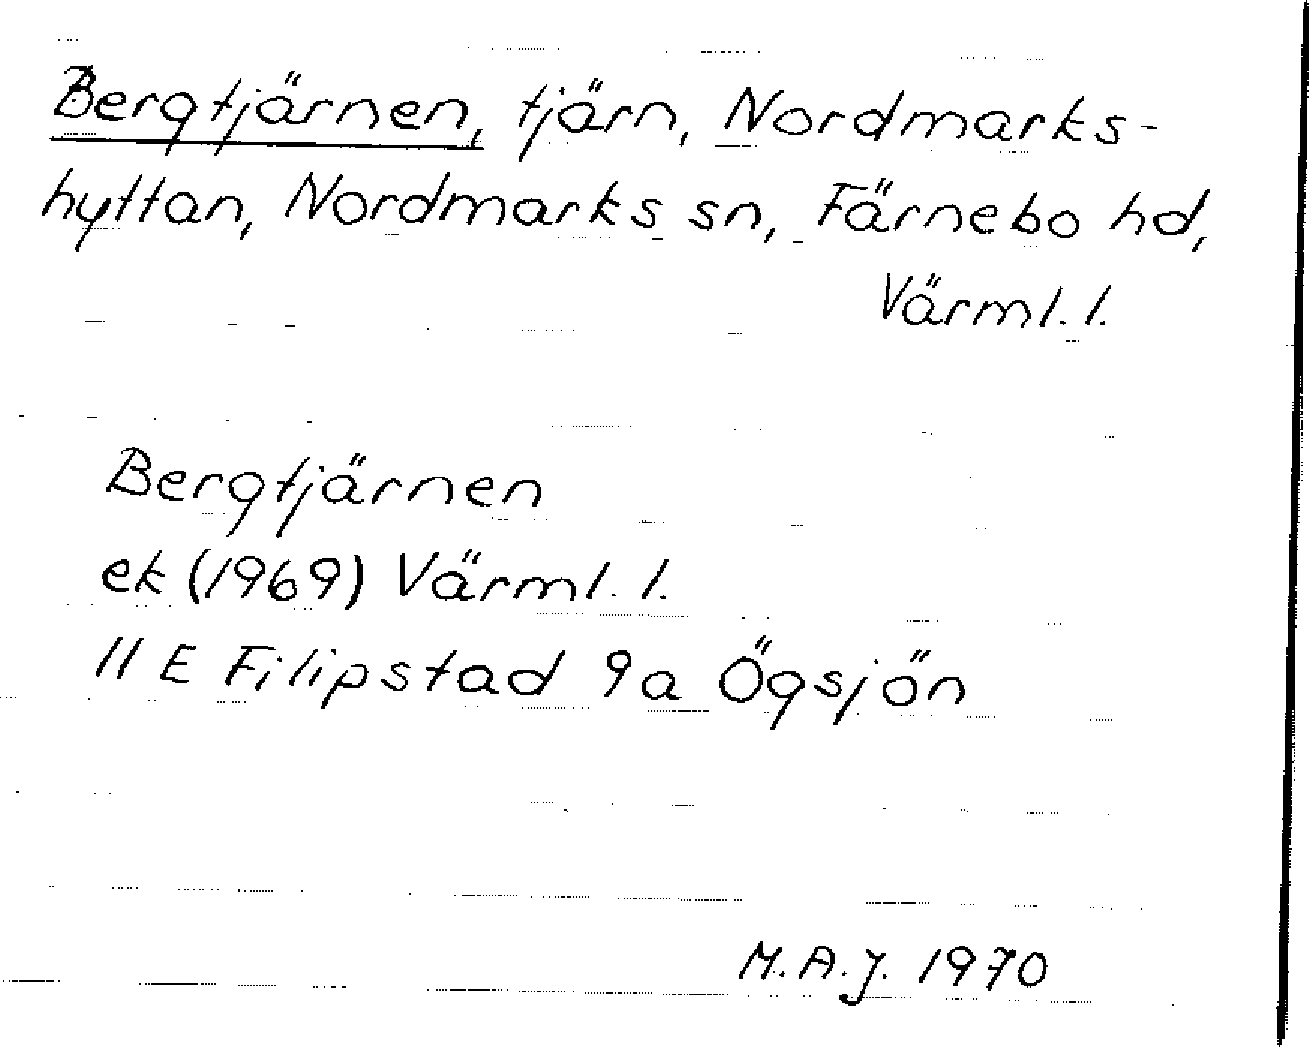 Bergtjärnen, tjärn, Nordmarks-
hyttan, Nordmarks sn, Färnebo hd,
Värml. l.
Bergtjärnen
ek (1969) Värml. l.
11 E Filipstad 9a Ögsjön
M.A.J. 1970